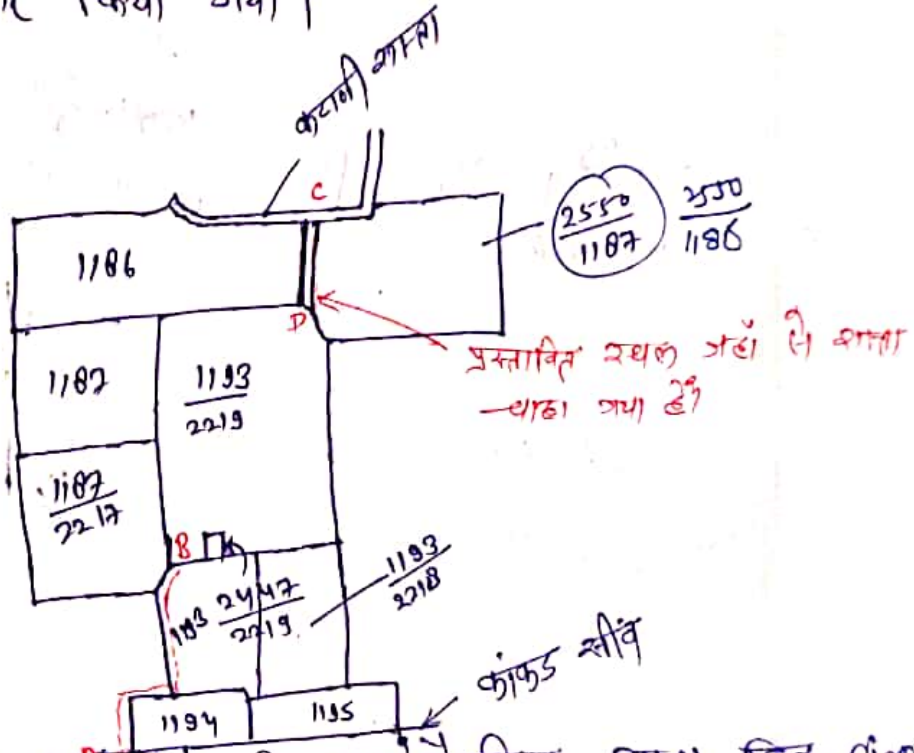 किया गया।
कटानी रास्ता
C
1186
2550
1187
250
1186
D
प्रस्तावित स्थल जहाँ से रास्ता
चाहा गया है।
1187
1193
2219
1187
2217
B
2447
2219
1193
2218
कांकड सीव
1194
1195